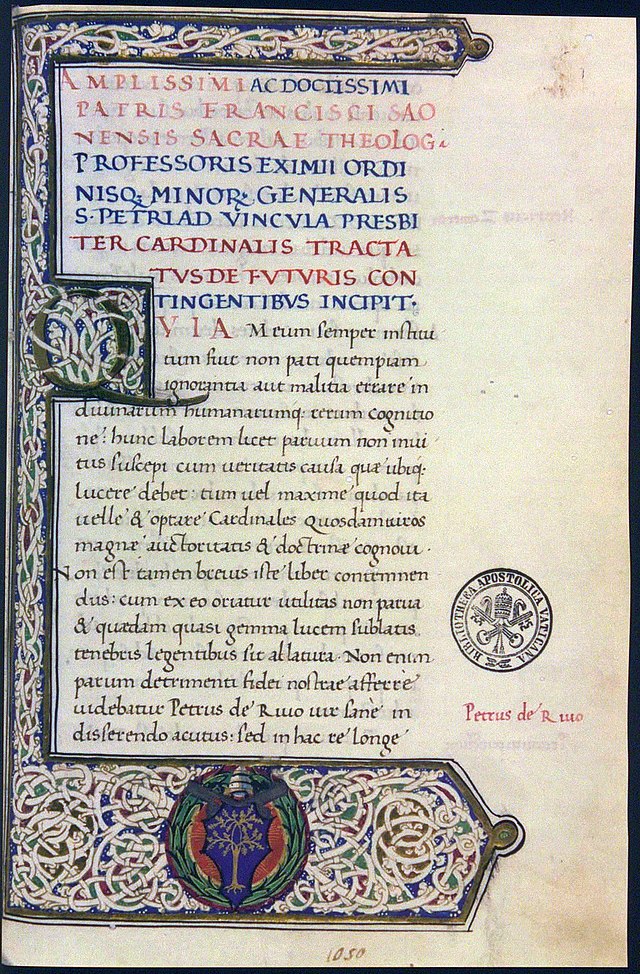 AMPLISSIMI AC DOCTISSIMI
PATRIS FRANCISCI SAO
NENSIS SACRAE THEOLOGI
PROFESSORIS EXIMII ORDI
NISQ; MINORꝜ GENERALIS
S·PETRI AD VINCVLA PRESBI
TER CARDINALIS TRACTA
TVS DE FVTVRIS CON
TINGENTIBVS INCIPIT·
QVIA Meum semper institu
tum fiut non pati quempiam
ignorantia aut malitia errare in
diuinarum humanarumq; rerum cognitio
ne: hunc laborem licet paruum non inui
tus suscepi cum ueritatis causa quæ ubiq;
lucere debet: tum uel maxime quod ita
uelle & optare Cardinales quosdam uiros
magnæ auctoritatis & doctrinæ cognoui·
Non est tamen breuis iste liber contemnen
dus: cum ex eo oriatur utilitas non parua
& quædam quasi gemma lucem sublatis
tenebris legentibus sit allatura· Non enim
parum detrimenti fidei nostrae afferre
uidebatur Petrus de Riuo uir sanè in
disserendo acutus: sed in hac re longe
BIBLIOTHECA APOSTOLICA VATICANA
Petrus de Riuo
1050